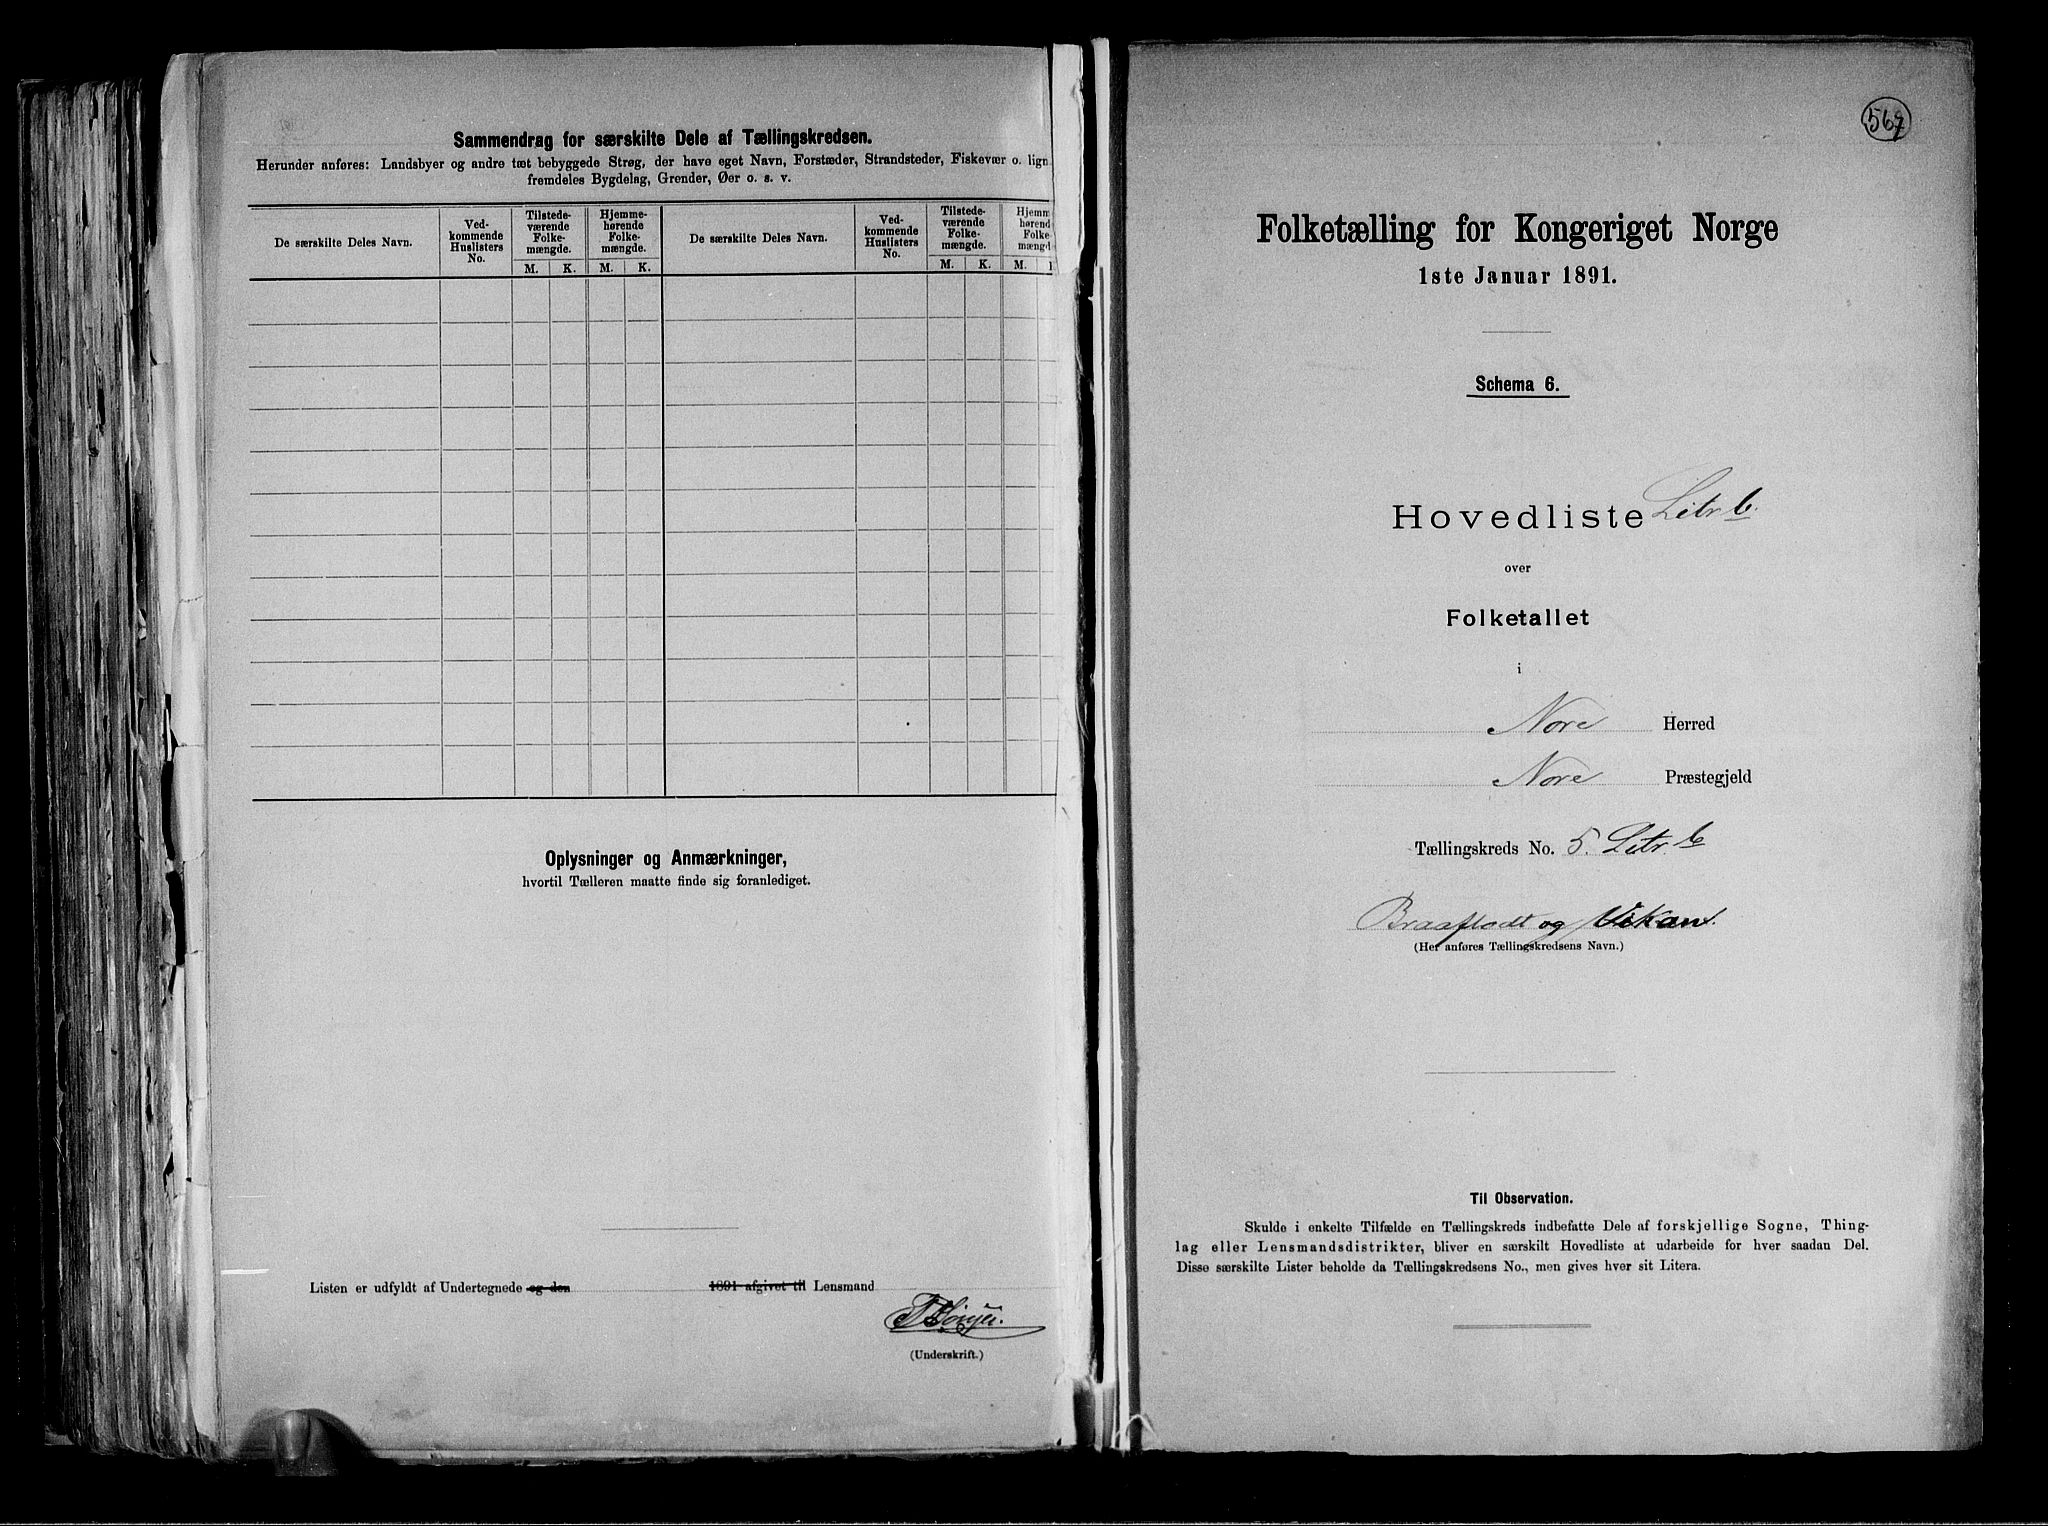 Sammendrag for særskilte Dele af Tællingskredsen.
Herunder anføres: Landsbyer og andre tæt bebyggede Strøg, der have eget Navn, Forstæder, Strandsteder, Fiskevær o. lign.
fremdeles Bygdelag, Grender, Øer o. s. v.
De særskilte Deles Navn.
Ved-
kommende
Huslisters
No.
Tilstede-
værende
Folke-
mængde.
Hjemme-
hørende
Folke-
mængde.
M. K. M. K.
De særskilte Deles Navn.
Ved-
kommende
Huslisters
No.
Tilstede-
værende
Folke-
mængde.
Hjemm
hørend
Folke
mængd
M. K. M.
Oplysninger og Anmærkninger,
hvortil Tælleren maatte finde sig foranlediget.
Listen er udfyldt af Undertegnede og den 1891 afgivet til Lensmand
(Underskrift.)
569
Folketælling for Kongeriget Norge
1ste Januar 1891.
Schema 6.
Hovedliste Litr b.
over
Folketallet
i
Nore Herred
Nore Præstegjeld
Tællingskreds No. 5. Litr. b
og
(Her anføres Tællingskredsens Navn.)
Til Observation.
Skulde i enkelte Tilfælde en Tællingskreds indbefatte Dele af forskjellige Sogne, Thing-
lag eller Lensmandsdistrikter, bliver en særskilt Hovedliste at udarbeide for hver saadan Del.
Disse særskilte Lister beholde da Tællingskredsens No., men gives hver sit Litera.